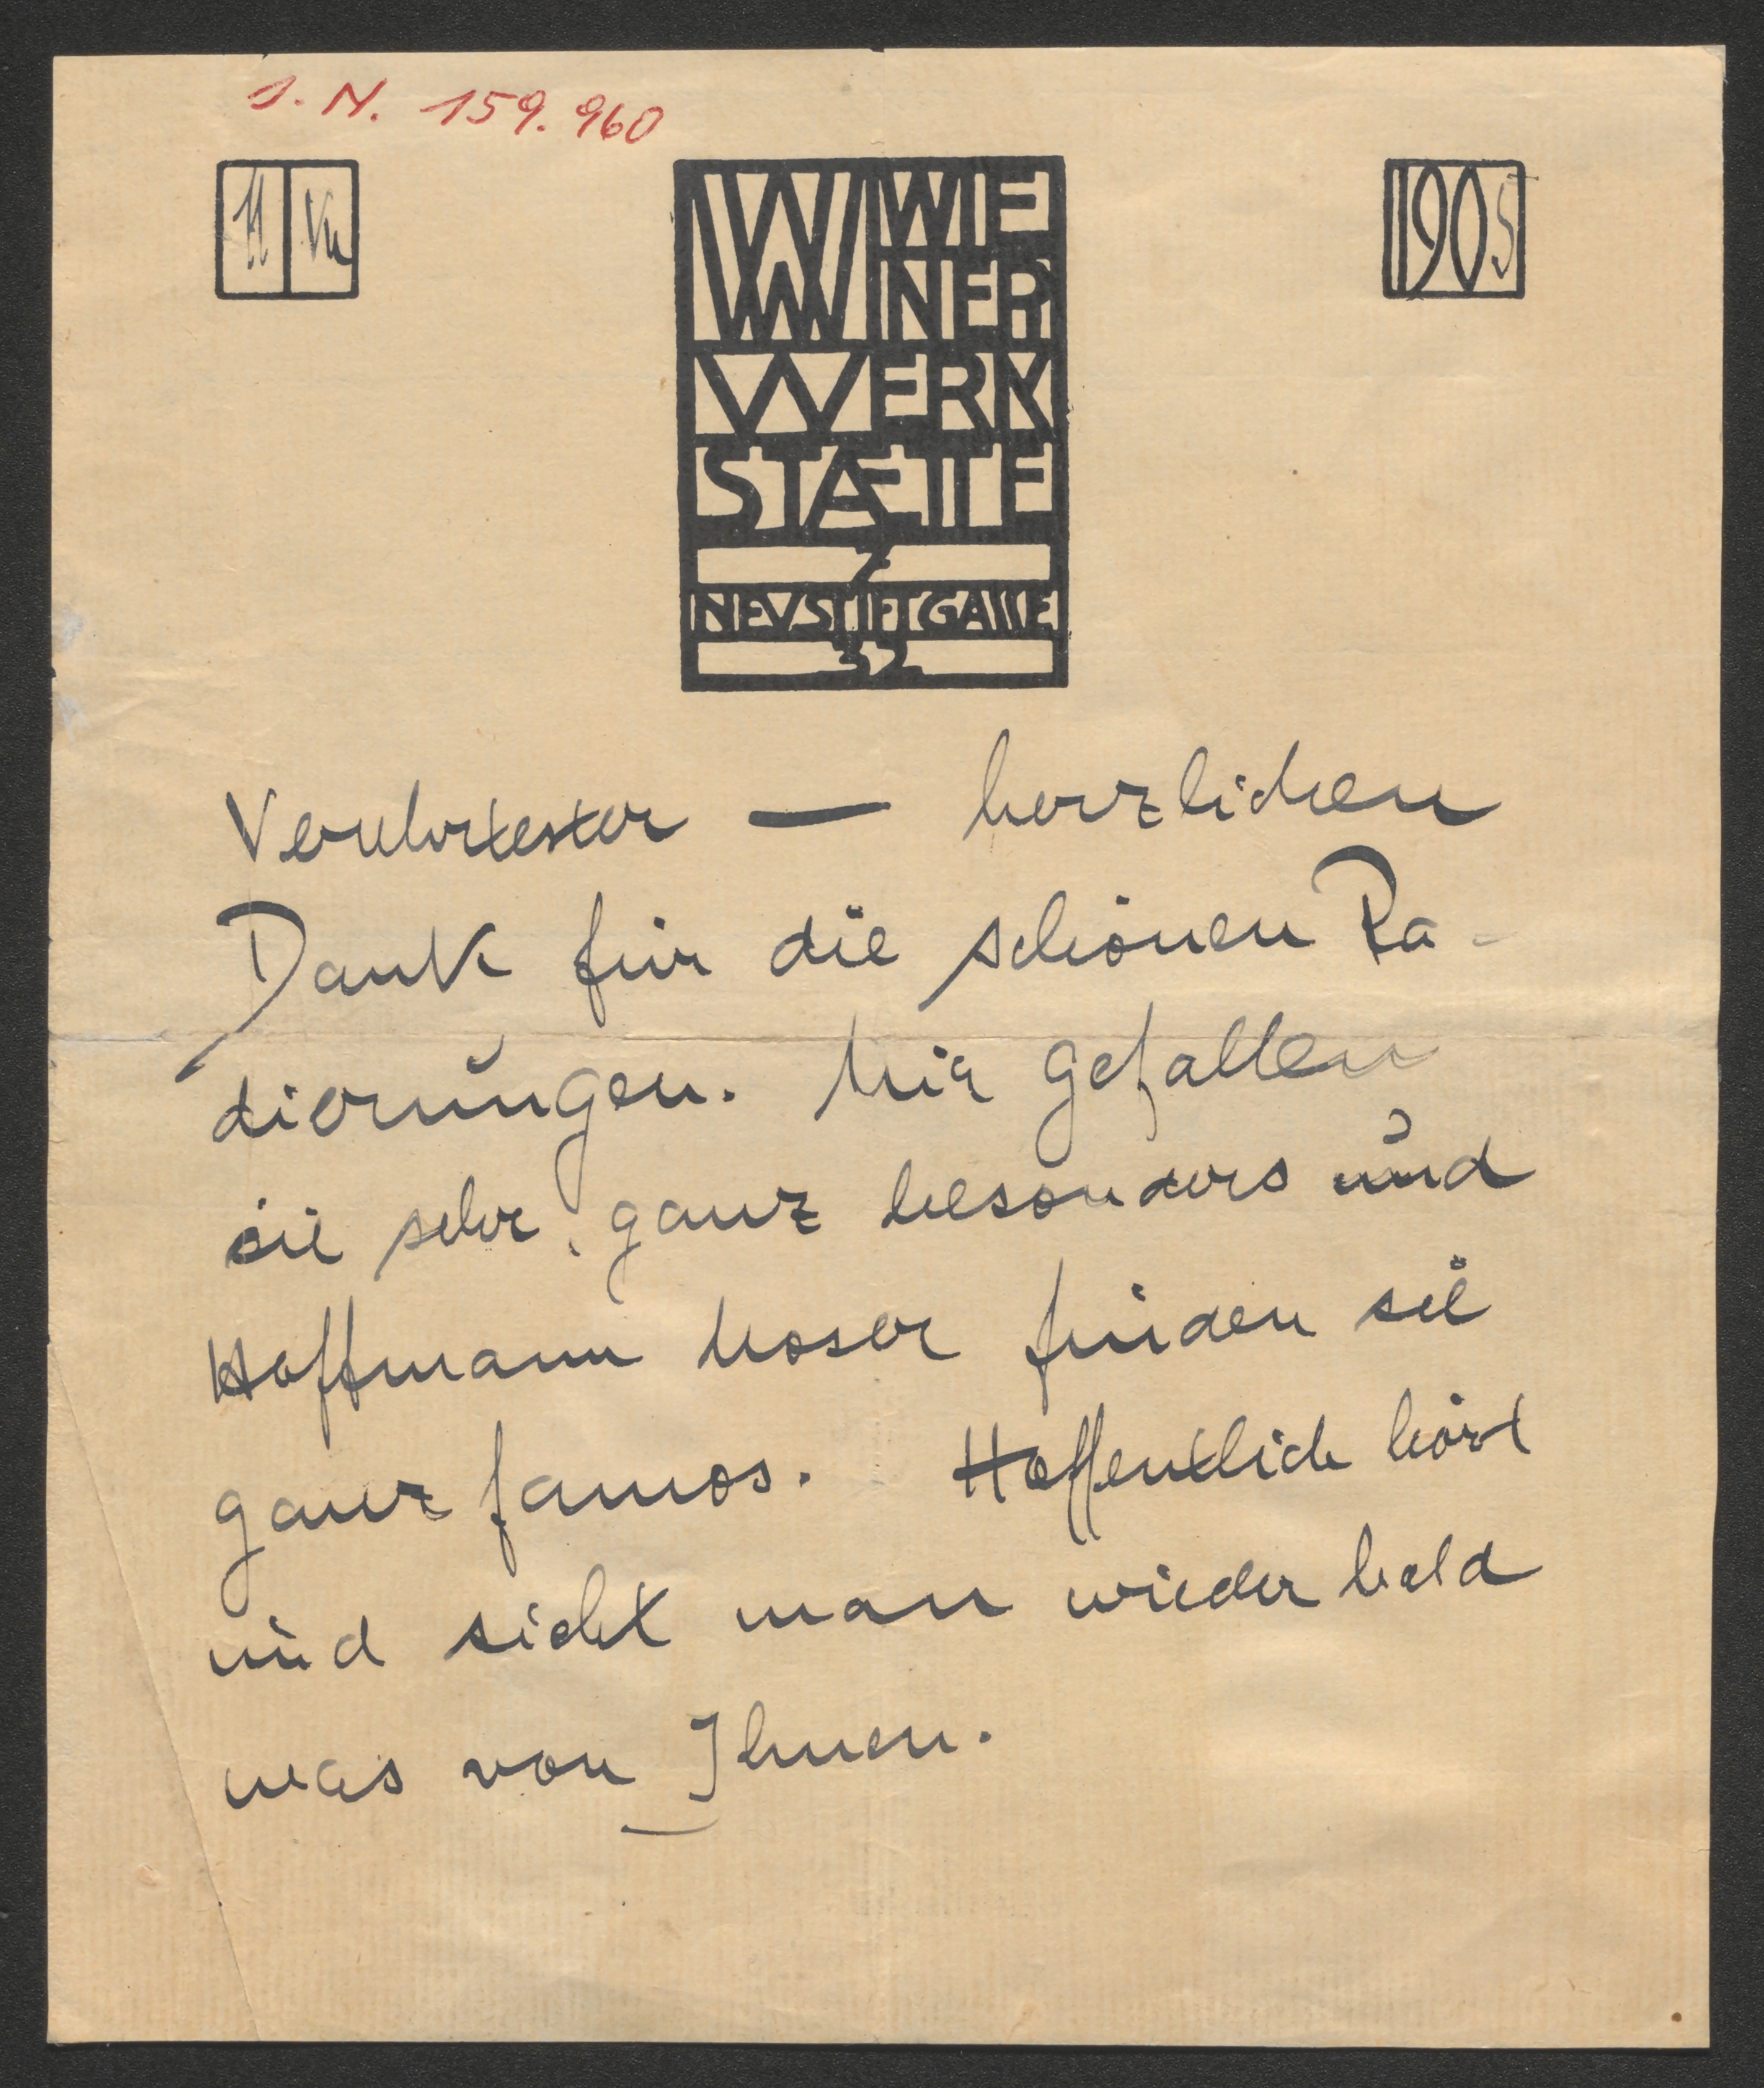 J. N. 159.960
11 VII
1905
WW WIE
NER
WERK
STÆTTE
7
NEVSTIFTGASSE
32
Verehrtester — herzlichen
Dank für die schönen Ra-
dierungen. Mir gefallen
sie sehr, ganz besonders und
Hoffmann Moser finden sie
ganz famos. Hoffentlich hört
und sieht man wieder bald
was von Ihnen.